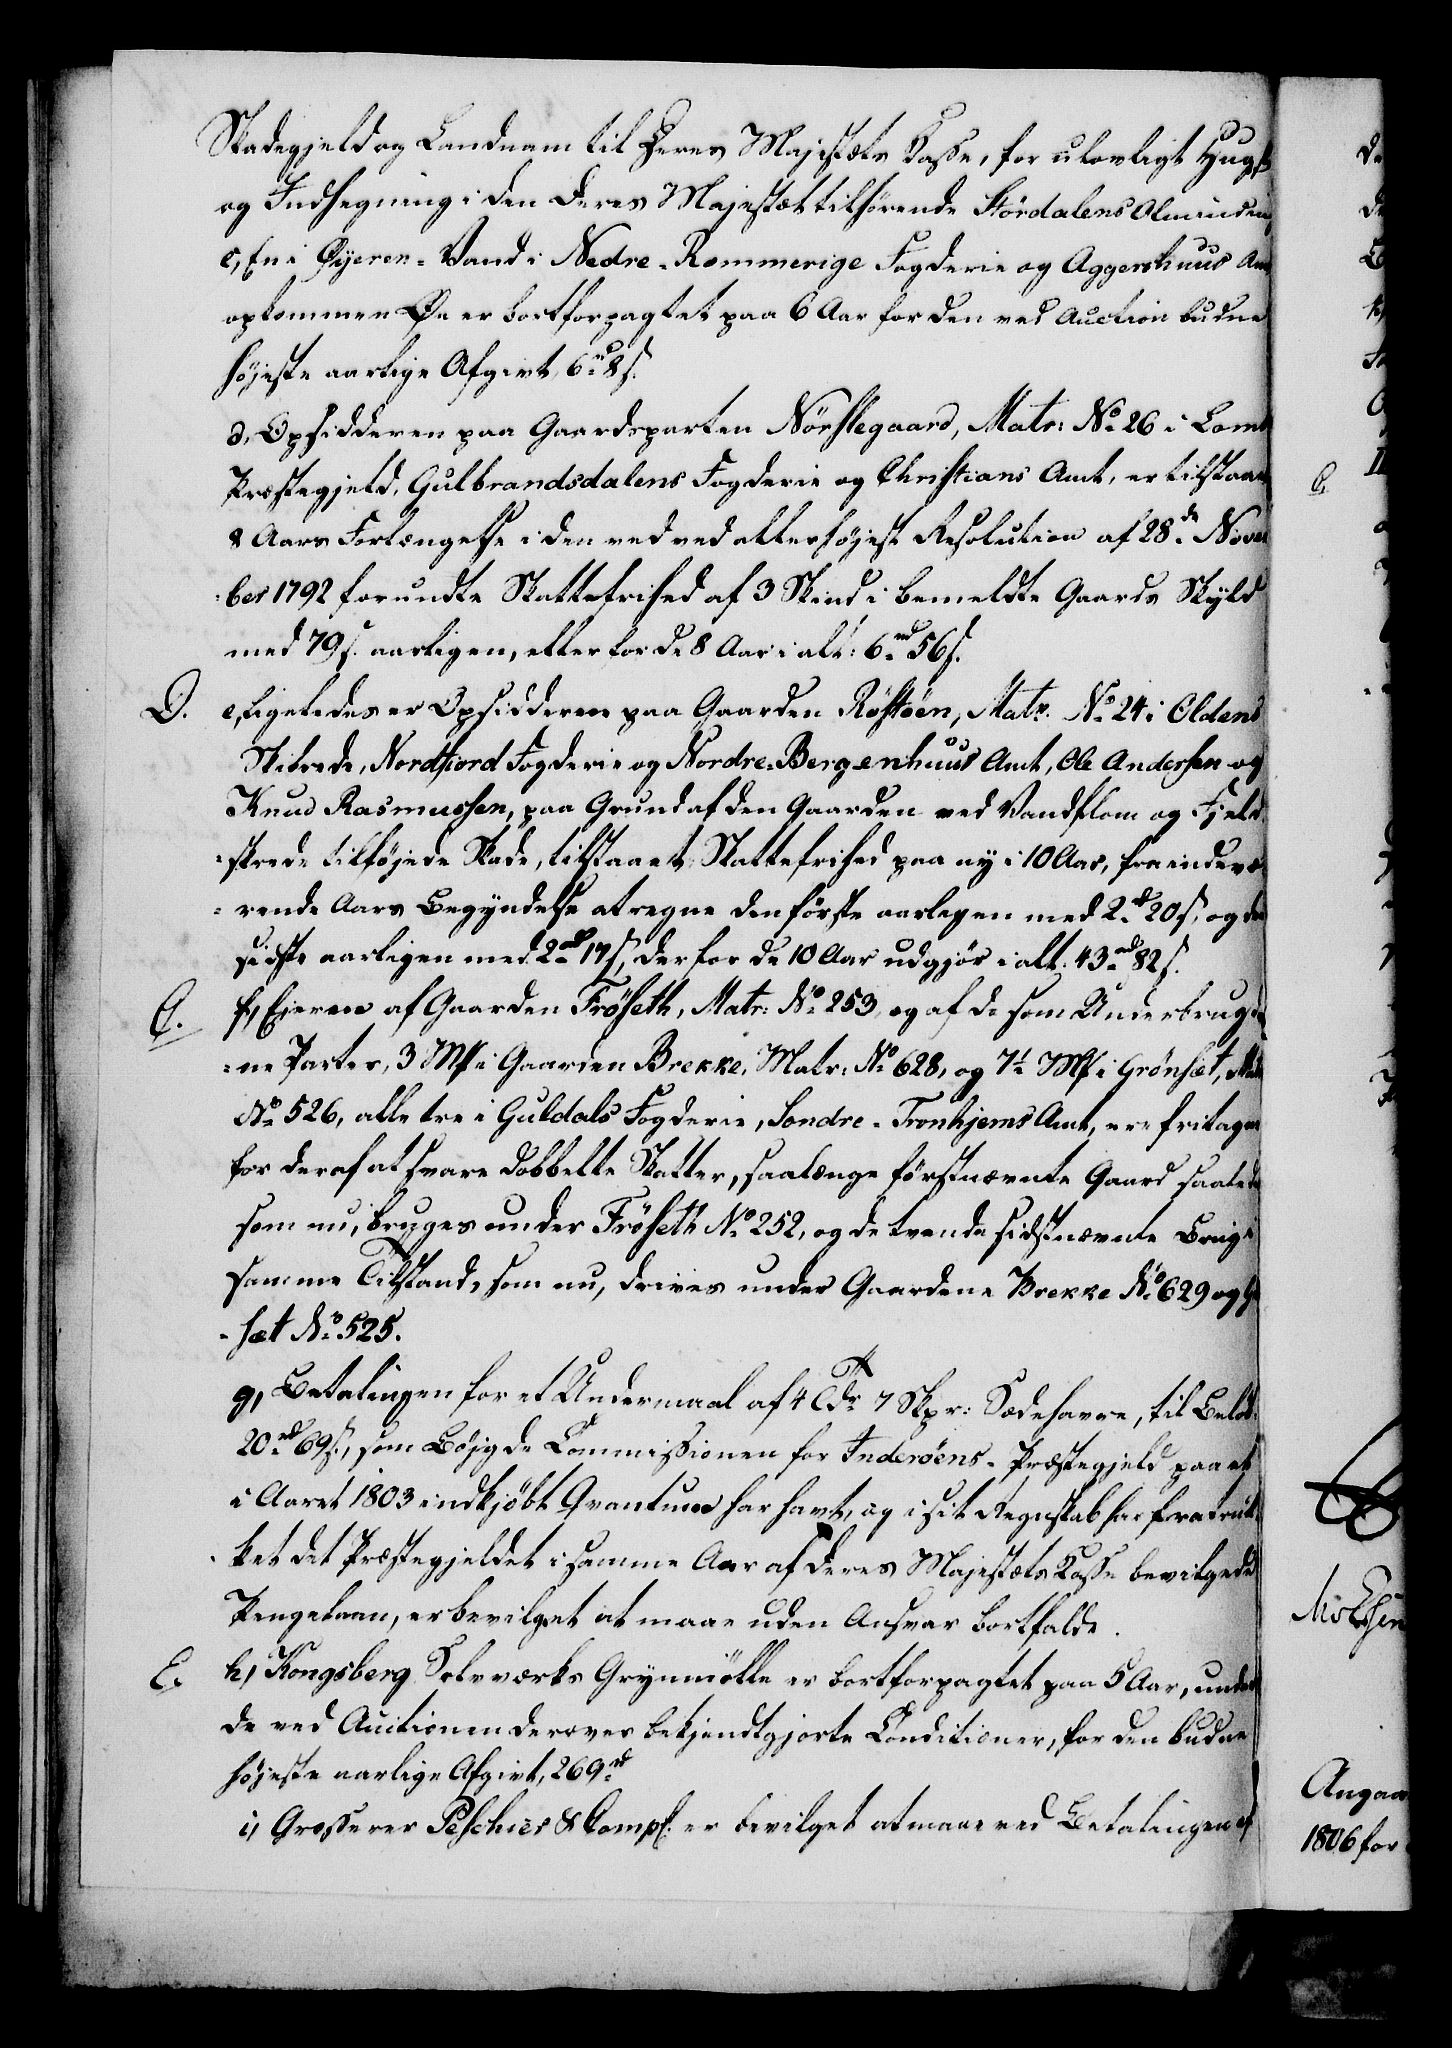 Skadegjeld og Landnam til Deres Majestæts Kasse, for ulovligt Hugst
og Indhegning i den Deres Majestæt tilhørende Stördalens Alminding
c, En i Øyeren-Vand i Nedre-Rommerige Fogderie og Aggershuus Amt
opkommen Øe er bortforpagtet paa 6 Aar for den ved Auction budne
højeste aarlige Afgivt, 6 rd 8 s.
d, Opsidderen paa Gaardsparten Nörstegaard, Matr: No 26 i Loms
Præstegjeld, Gulbrandsdalens Fogderie og Christians Amt, er tilstaaet
8 Aars Forlængelse i den ved ved allerhøjeste Resolution af 28de Novem
ber 1792 forundte Skattefrihed af 3 Skind i bemeldte Gaards Skyld
med 79 s. aarligen, eller for de 8 Aar i alt: 6 rd 56 s.
D. e, Ligeledes er Opsidderne paa Gaarden Röstöen, Matr. No 24 i Oldens
Skibrede, Nordfiord Fogderie og Nordre-Bergenhuus Amt, Ole Andersen og
Knud Rasmussen, paa Grund af den Gaarden ved Vandflom og Fjeld
skrede tilføjede Skade, tilstaaet Skattefrihed paa ny i 10 Aar, fra indevæ-
rende Aars Begyndelse at regne den förste aarligen med 2 rd 20 s, og den
sidste aarligen med 2 rd 17 s, der for de 10 Aar udgjør i alt: 43 rd 82 s.
C. f, Ejeren af Gaarden Fröseth, Matr: No 253, og af de som Underbrug
ne Parter, 3 Mk i Gaarden Brekke, Matr: No 628, og 7½ Mk i Grönsæt, Matr
No 526, alle tre i Guldals Fogderie, Söndre-Tronhjems Amt, ere fritagne
for deraf at svare dobbelte Skatter, saalænge förstnævnte Gaard saaledes
som nu, bruges under Fröseth No 252, og de tvende sidstnævnte Brug i
samme Tilstand, som nu, drives under Gaardene Brekke No 629 og Grön
-sæt No 525.
g, Betalingen for et Undermaal af 4 Tdr 7 Skpr: Sædehavre, til Beløb
20 rd 69 s., som Böjgde Commissionen for Inderöens-Præstegjeld paa et
i Aaret 1803 indkjöbt Qvantum har havt, og i sit Regnskab har fratruk
ket det Præstegjeldet i samme Aar af Deres Majestæts Kasse bevilgede
Pengelaan, er bevilget at maae uden Ansvar bortfalde.
E. h, Kongsberg Sølvværks Grynmölle er bortforpagtet paa 5 Aar, under
de ved Auctionen derover bekjendtgjorte Conditioner, for den budne
højeste aarlige Afgivt, 269 rd
i, Grosserer Peschier & Comp: er bevilget at maae ved Betalingen af
C.
Angaa
1806 for